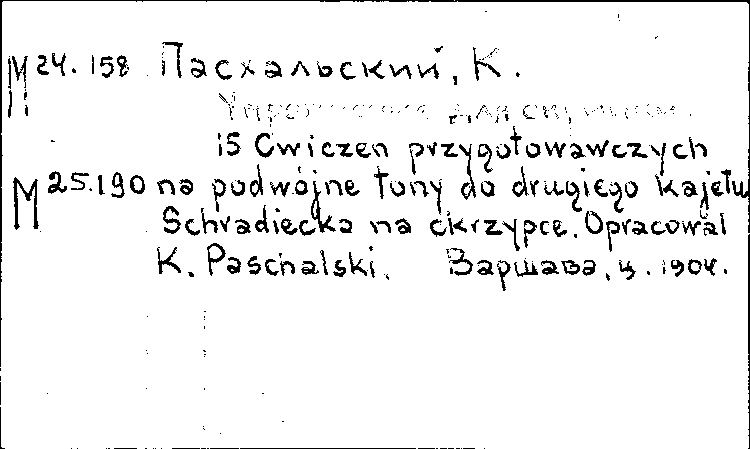 М 24.158 Пасхальский, К.
Упражнение для скрипки.
15 Cwiczen przygotowawczych
М 25.190 na podwójne tony do drugiego kajetu
Schradiecka na skrzypce. Opracował
K. Paschalski. Варшава, ц. 1904.